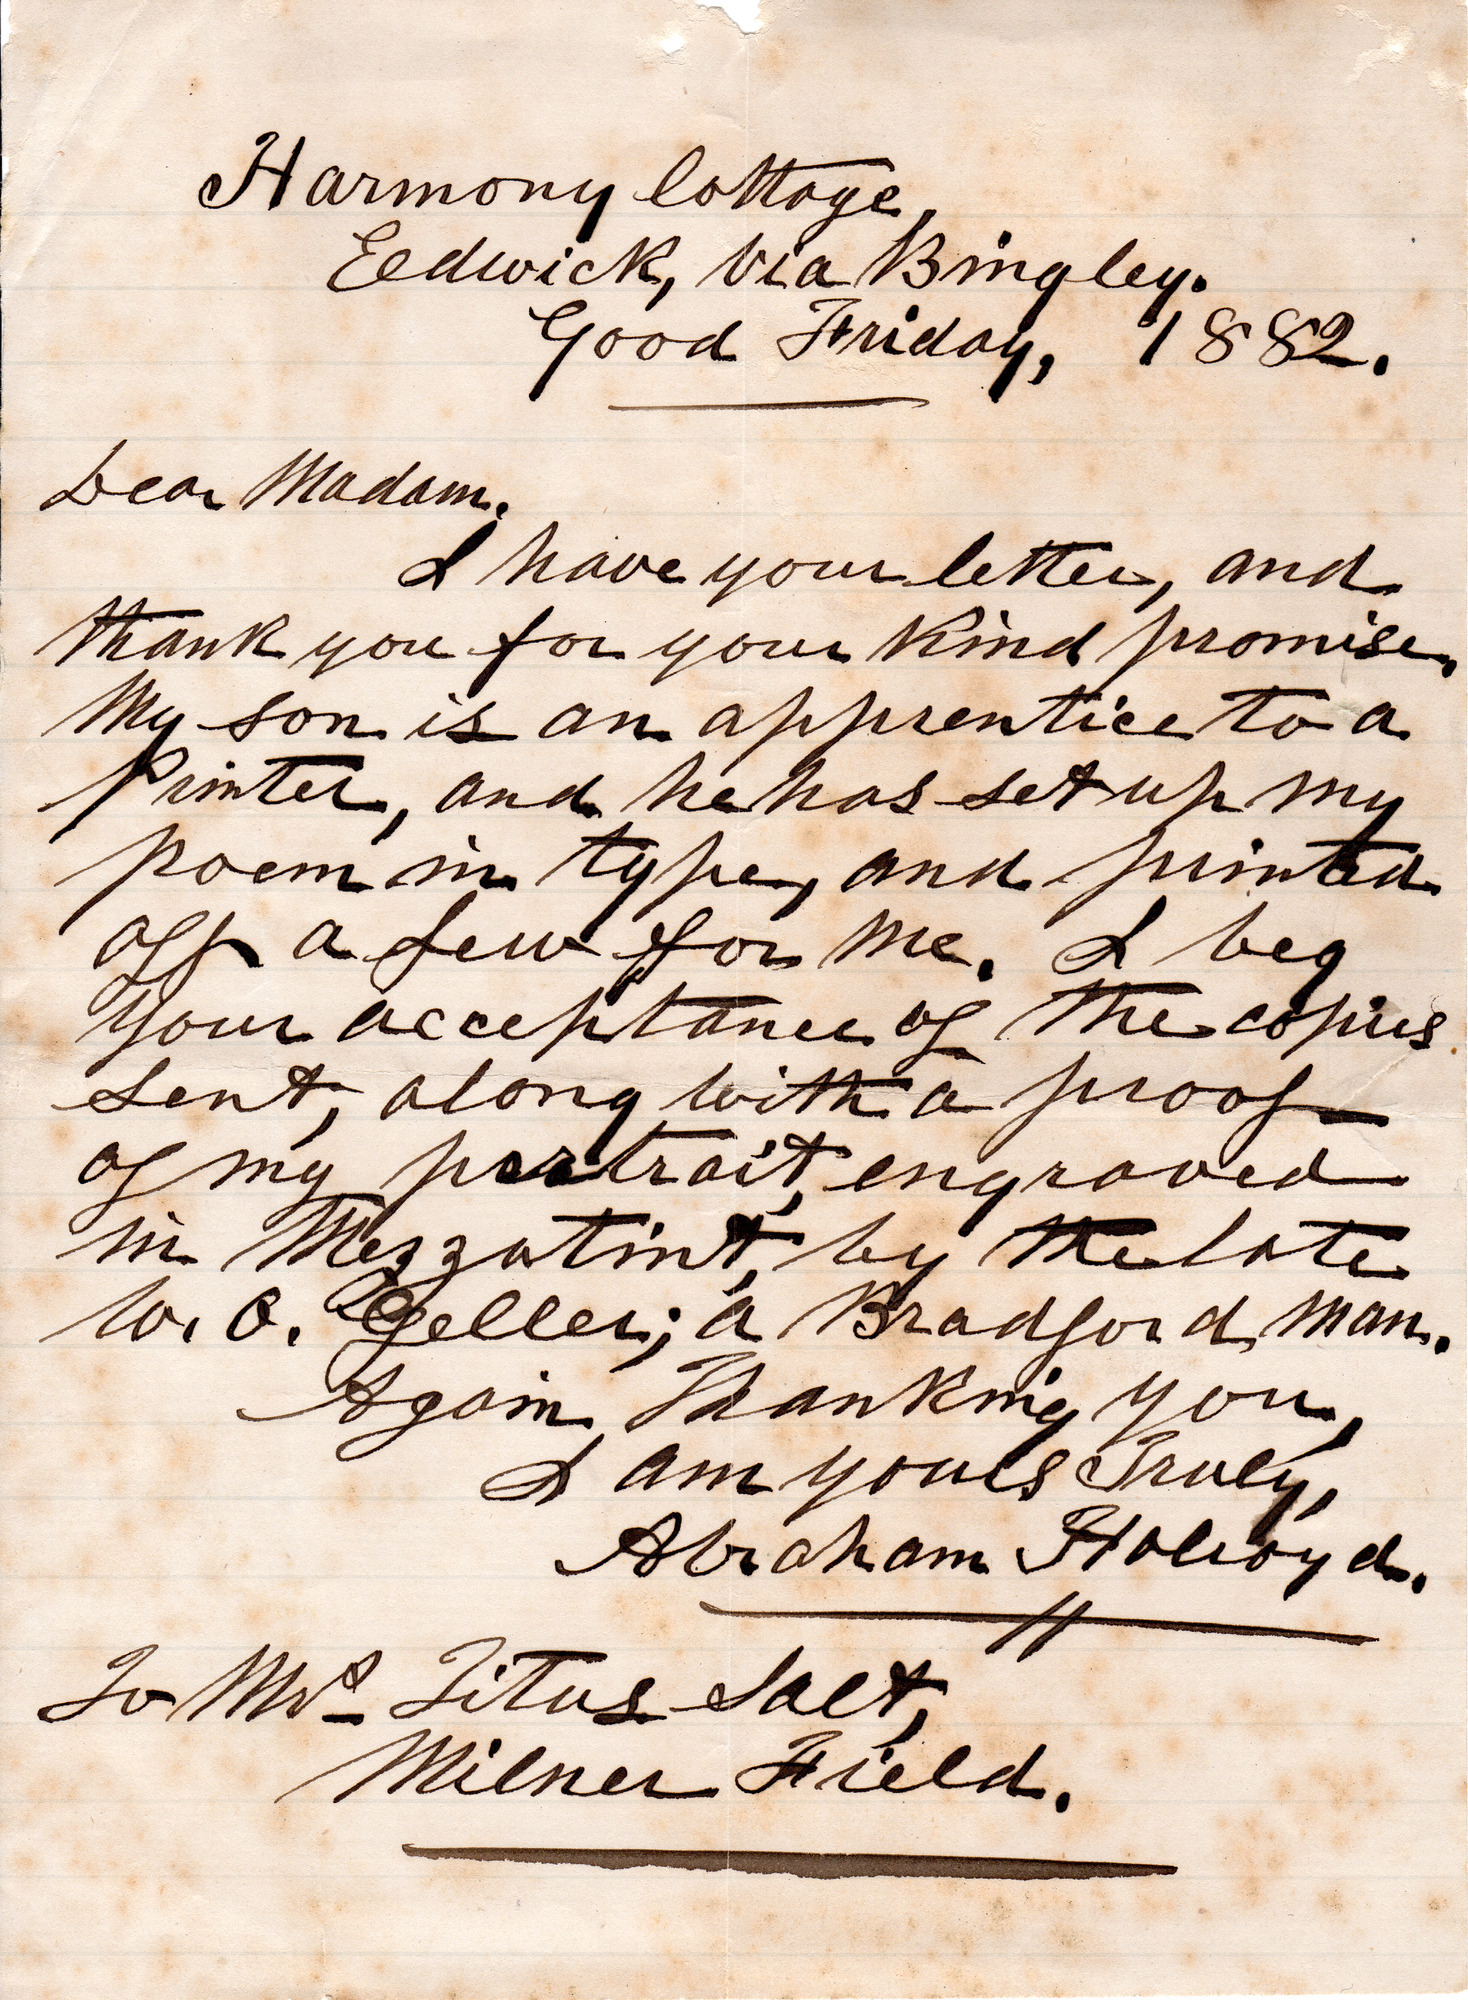 Harmony Cottage,
Eldwick, Via Bingley.
Good Friday, 1882.
Dear Madam.
I have your letter, and
thank you for your kind promise.
My son is an apprentice to a
Printer, and he has set up my
poem in type, and printed
off a few for me. I beg
your acceptance of the copies
sent, along with a proof
of my portrait, engraved
in Mezzotint, by the late
W. O. Geller; a Bradford man.
Again Thanking you,
I am yours Truly,
Abraham Holroyd.
To Mrs Titus Salt,
Milner Field.